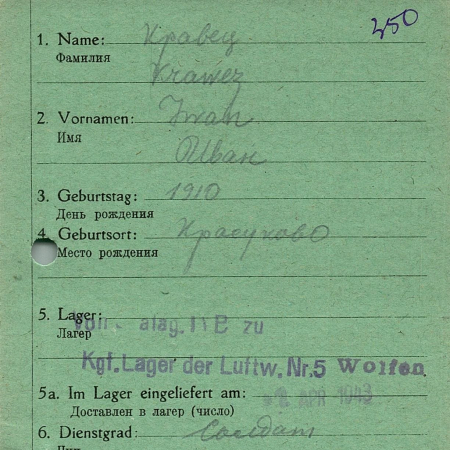 350
1. Name: Кравец
Фамилия
Krawez
2. Vornamen: Iwan
Имя
Иван
3. Geburtstag: 1910
День рождения
4. Geburtsort: Красуково
Место рождения
5. Lager:
Лагер
zu
Kgf. Lager der Luftw. Nr. 5 Wolfen
5a. Im Lager eingeliefert am: APR 1943
Доставлен в лагер (число)
6. Dienstgrad: Солдат
Чин